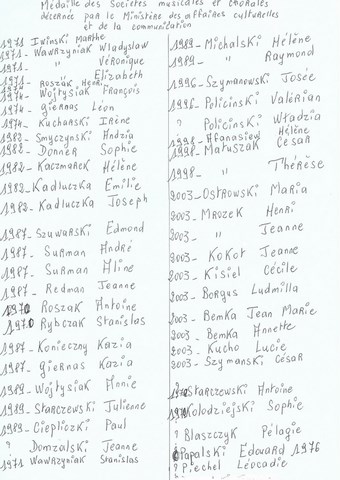 Médaille des Sociétés musicales et chorales
décernée par le Ministère des affaires culturelles
et de la communication
1971 Iwinski Marthe
1971- Wawrzyniak Wladyslaw
1971- " Véronique
1971- " Elizabeth
1971- Roszak Henri
1974- Wojtysiak François
1974- Giernas Léon
1974- Kucharski Irène
1982- Smyczynski Andzia
1982- Donner Sophie
1982- Kaczmarek Hélène
1982- Kadluczka Emilie
1982- Kadluczka Joseph
1987- Szuwarski Edmond
1987- Surman André
1987- Surman Aline
1987- Redman Jeanne
1970 Roszak Antoine
1970 Rybczak Stanislas
1987- Konieczny Kazia
1987- Giernas Kazia
1989- Wojtysiak Monie
1989- Starczewski Julienne
1989- Ciepliczi Paul
? Domzalski Jeanne
1971 Wawrzyniak Stanislas
1989- Michalski Hélène
1989- " Raymond
1996- Szymanowski Josée
1996- Policinski Valérian
? Policinski Władzia
1998- Afanasiew Hélène
1998- Matuszak César
1998- " Thérèse
2003- Ostrowski Maria
2003- Mrozek Henri
2003- " Jeanne
2003- Kokot Jeanne
2003- Kisiel Cécile
2003- Borgus Ludmilla
2003- Bemka Jean Marie
2003- Bemka Annette
2003- Kucho Lucie
2003- Szymanski César
Starczewski Antoine
Kolodziejski Sophie
? Blaszczyk Pélagie
Papalski Edouard 1976
? Piechel Léocadie